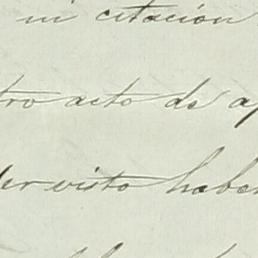 ni citación
tro acto de a
der visto haber